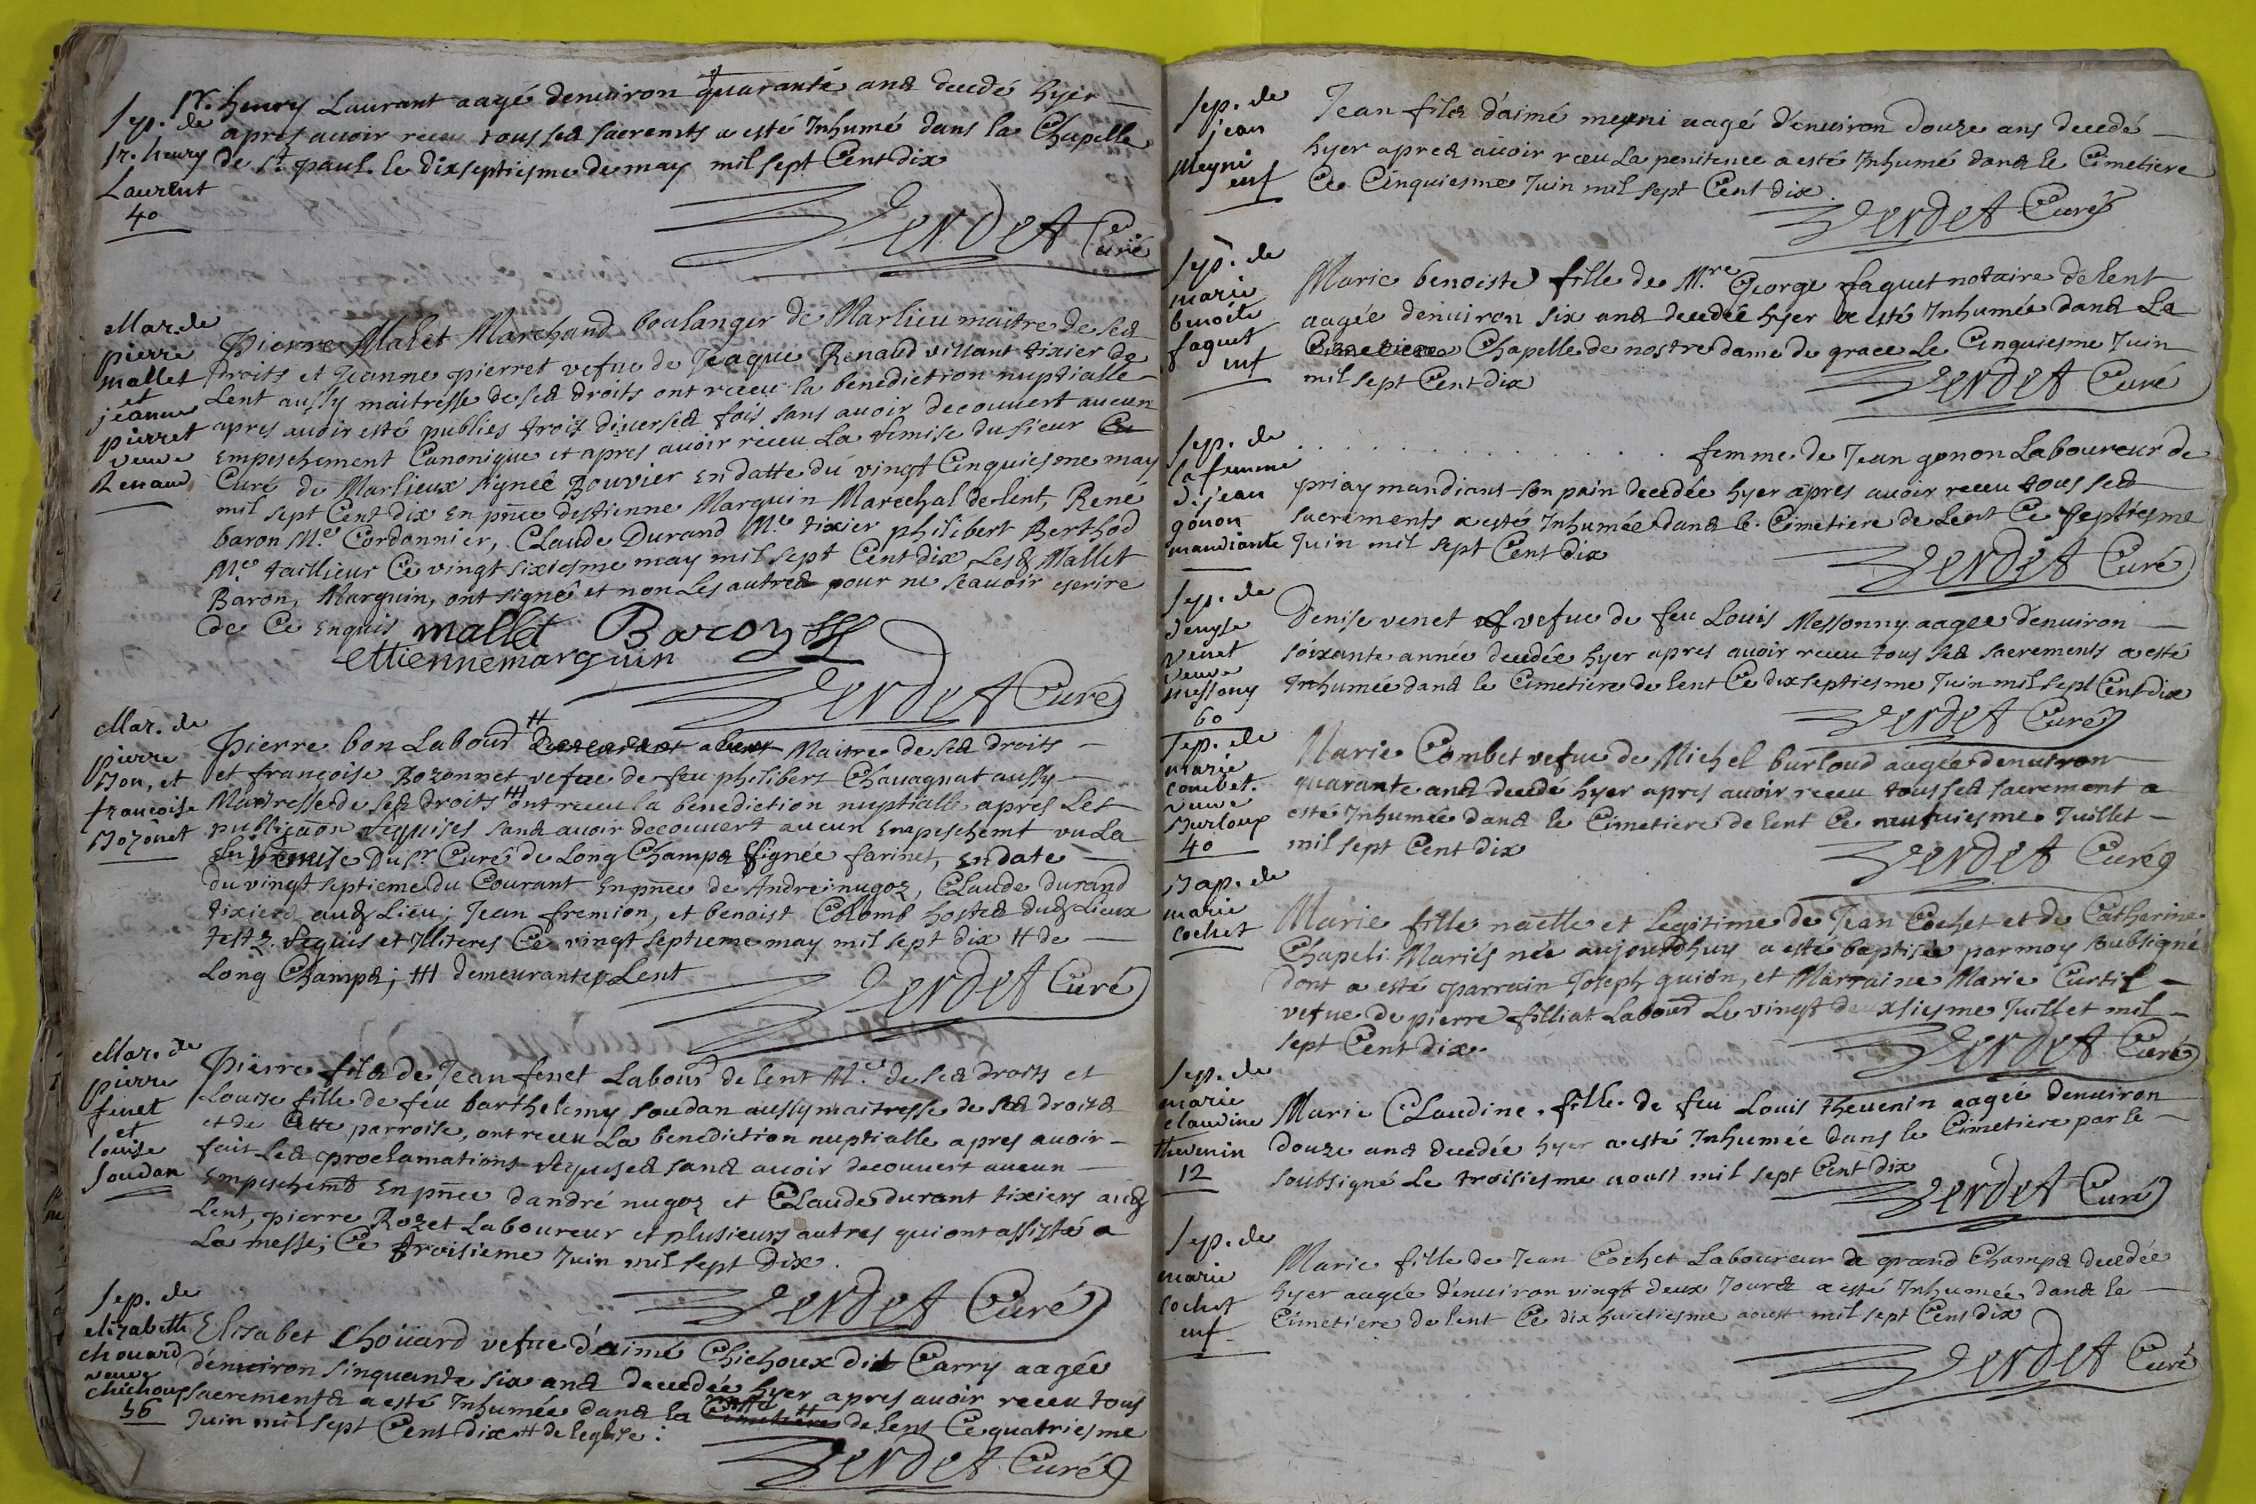 Sep. de
Sr. henry
Laurent
40
Sr. henry Laurant aagé denuiron quarante ans decedé hyer
apres auoir receu tous ses sacremts a esté Inhumé dans la Chapelle
de St. paul. le dixseptiesme de may mil sept Cent dix
Verdet Curé
Mar. de
pierre
mallet
et
jeanne
pierret
veuve
Renaud
Pierre Malet Marchand boulanger de Marlieu maitre de ses
droits et Jeanne pierret vefue de Jeaque Renaud viuant tixier de
Lent aussy maitresse de ses droits ont receu la benediction nuptialle
apres auoir esté publies trois diuerses fois sans auoir decouuert aucun
Empeschement Canonique et apres auoir receu La remise du sieur
Curé de Marlieux signeé Bouvier En datte du vingt Cinquiesme may
mil sept Cent dix En pnce destienne Marguin Marechal de lent, René
baron Me. Cordonnier, Claude Durand Me tixier philibert Berthod
Me taillieur Ce vingt sixiesme may mil sept Cent dix Lesd Mallet
Baron, Marguin, ont signé et non Les autres pour ne scauoir escrire
de Ce enquis mallet Baron
ettienne marguin
Verdet Curé
Mar. de
pierre
Bon, et
françoise
Bozonet
Pierre bon Laboud # Maitre de ses droits
et françoise Bozonnet vefue de feu philibert Chauagnat aussy
Maitresse de ses droits ont receu la benediction nuptialle apres Les
publicaôn requises sans auoir decouuert aucun Empeschemt vu La
remise du sr. Curé de Long Champs signée farinet, En date
du vingt septieme du Courant En pnce de Andre nugoz, Claude durand
tixiers aud Lieu; Jean fremion, et benoist Colomb hostes dud Lieux
requis et Illiteres Ce vingt septieme may mil sept dix # de
Long Champs; demeurante Lent
Verdet Curé
Mar. de
pierre
fenet
et
louise
soudan
Pierre fils de Jean fenet Laboud de lent Me. de ses droits et
Louise fille de feu barthelemy soudan aussy maitresse de ses droits
et de Cette parroise, ont receu La benediction nuptialle apres auoir
fait Les proclamations requises sans auoir decouuert aucun
Empeschemt En pnce dandré nugoz et Claude durant tixiers aud
Lent, pierre Rozet Laboureur et plusieurs autres qui ont assisté a
La messe; Ce troisieme Juin mil sept Dix.
Verdet Curé
Sep. de
elizabeth
chouard
veuve
chichoux
56
Elisabet Choüard vefue d'aimé Chichoux dit Carry aagée
d'enuiron sinquante six ans decedée hyer apres auoir receu tous
sacrements a esté Inhumée dans la Cimetiere de lent Ce quatriesme
Juin mil sept Cent dix # de leglise:
Verdet Curé
Sep. de
jean
Meyni
enf
Jean fils d'aimé meyni aagé d'enuiron douze ans decedé
hyer apres auoir receu La penitence a esté Inhumé dans le Cimetiere
Ce Cinquiesme Juin mil sept Cent dix.
Verdet Curé
Sep. de
marie
benoite
faguet
enf
Marie benoiste fille de Mre. George faguet notaire de lent
aagée denuiron six ans decedée hyer a esté Inhumée dans La
Cimetiere Chapelle de nostre dame de grace Le Cinquiesme Juin
mil sept Cent dix
Verdet Curé
Sep. de
la femme
d. jean
gonon
mandiante
. . . . . . . . . . . . femme de Jean gonon Laboureur de
priay mandiant son pain decedée hyer apres auoir receu tous ses
sacrements a esté Inhumée dans le Cimetiere de Lent Ce septiesme
Juin mil sept Cent Dix
Verdet Curé
Sep. de
Denyse
venet
veuve
messony
60
Denise venet vefue de feu Louis Messonny aagee denuiron
soixante année decedée hyer apres auoir receu tous ses sacrements a esté
Inhumée dans le Cimetiere de lent Ce dixseptiesme Juin mil sept Cent dix
Verdet Curé
Sep. de
marie
combet.
veuve
Burloup
40
Marie Combet vefue de Michel burloud aagée denuiron
quarante ans decedé hyer apres auoir receu tous ses sacrement a
esté Inhumée dans le Cimetiere de lent Ce neufuiesme Juillet
mil sept Cent dix
Verdet Curé
Bap. de
marie
cochet
Marie fille naelle et Legitime de Jean Cochet et de Catherine
Chapeli Mariés née aujourdhuy a esté baptisée par moy subsigné
dont a esté parrain Joseph guion, et Marraine Marie Curtil
vefue de pierre filliat Laboud Le vingt deuxsiesme Juillet mil
sept Cent dix.
Verdet Curé
Sep. de
marie
claudine
thevenin
12
Marie Claudine fille de feu Louis thevenin aagée denuiron
douze ans decedée hyer a esté Inhumée dans le Cimetiere par le
soubsigné Le troisiesme aoust mil sept Cent dix
Verdet Curé
Sep. de
marie
cochet
enf
Marie fille de Jean Cochet Laboureur a grand Champs decedée
hyer aagée d'enuiron vingt deux Jours a esté Inhumée dans le
Cimetiere de lent Ce dix huictiesme aoust mil sept Cent dix
Verdet Curé